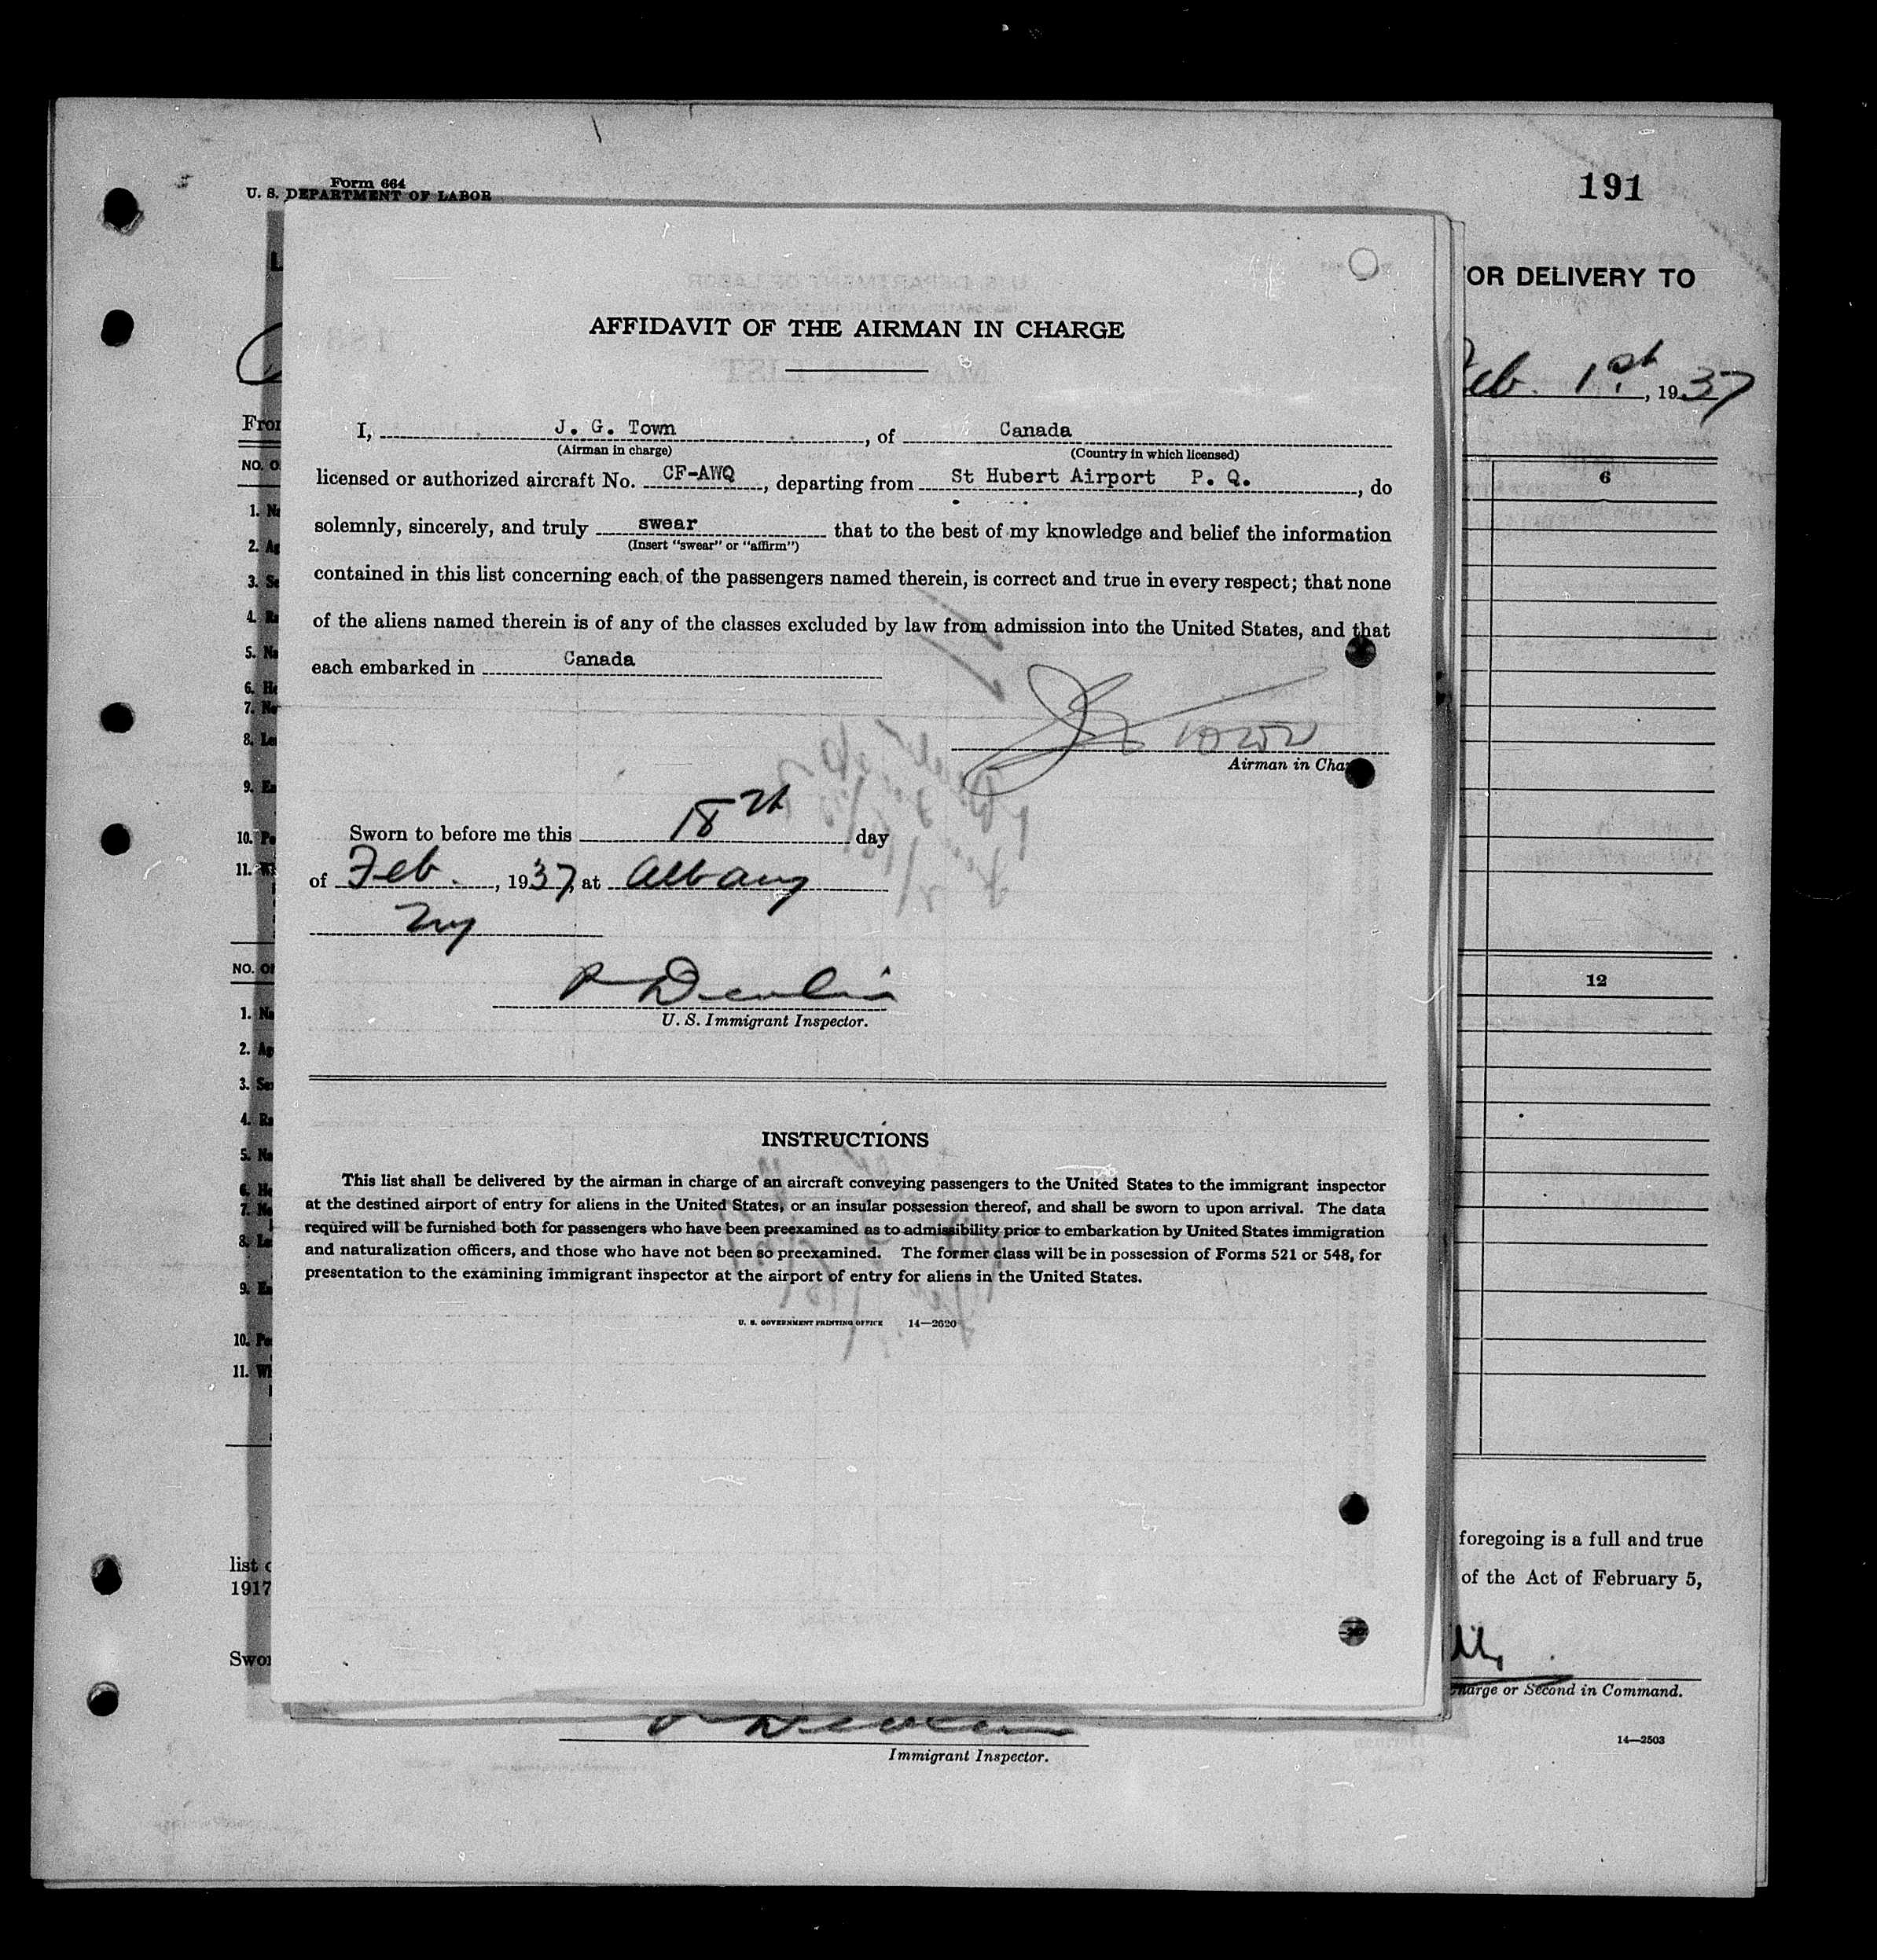 Form 664
U. S. DEPARTMENT OF LABOR
191
OR DELIVERY TO
Feb. 1st, 1937
From
NO. O
6
1. Na
2. Ag
3. Se
4. Ra
5. Na
6. He
7. Ne
8. Le
9. En
10. Pe
11. Wh
NO. OF
12
1. Na
2. Ag
3. Sex
4. Ra
5. Na
6. He
7. Ne
8. Le
9. En
10. Pe
11. Wh
AFFIDAVIT OF THE AIRMAN IN CHARGE
I, J. G. Town, of Canada
(Airman in charge) (Country in which licensed)
licensed or authorized aircraft No. CF-AWQ, departing from St Hubert Airport P. Q., do
solemnly, sincerely, and truly swear that to the best of my knowledge and belief the information
(Insert "swear" or "affirm")
contained in this list concerning each of the passengers named therein, is correct and true in every respect; that none
of the aliens named therein is of any of the classes excluded by law from admission into the United States, and that
each embarked in Canada
J G Town
Airman in Cha
Sworn to before me this 18th day
of Feb., 1937, at Albany
NY
P Devlin
U. S. Immigrant Inspector.
INSTRUCTIONS
This list shall be delivered by the airman in charge of an aircraft conveying passengers to the United States to the immigrant inspector
at the destined airport of entry for aliens in the United States, or an insular possession thereof, and shall be sworn to upon arrival. The data
required will be furnished both for passengers who have been preexamined as to admissibility prior to embarkation by United States immigration
and naturalization officers, and those who have not been so preexamined. The former class will be in possession of Forms 521 or 548, for
presentation to the examining immigrant inspector at the airport of entry for aliens in the United States.
U. S. GOVERNMENT PRINTING OFFICE 14—2620
foregoing is a full and true
list o
of the Act of February 5,
1917
Swor
Charge or Second in Command.
14—2503
Immigrant Inspector.